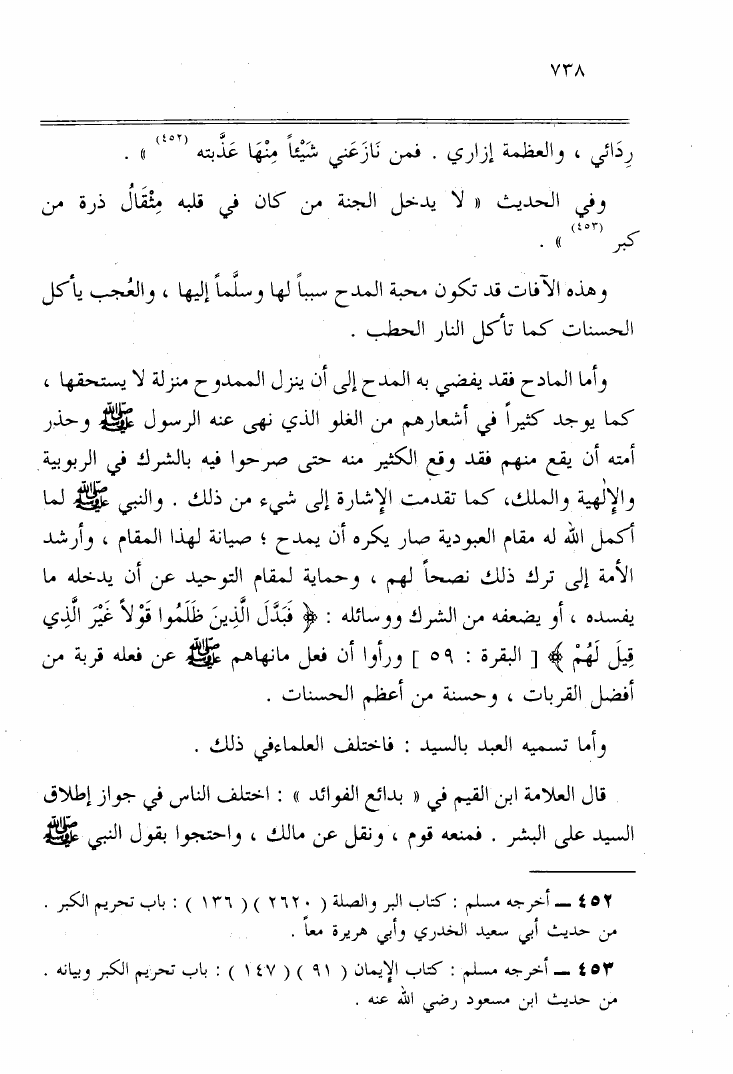 ٧٣٨
رِدَائي ، والعظمة إزاري . فمن نَازَعَني شَيْئاً مِنْهَا عَذَّبته (٤٥٢) » .
وفي الحديث « لا يدخل الجنة من كان في قلبه مِثْقَالُ ذرة من
كبر (٤٥٣) » .
وهذه الآفات قد تكون محبة المدح سبباً لها وسلَّماً إليها ، والعُجب يأكل
الحسنات كما تأكل النار الحطب .
وأما المادح فقد يفضي به المدح إلى أن ينزل الممدوح منزلة لا يستحقها ،
كما يوجد كثيراً في أشعارهم من الغلو الذي نهى عنه الرسول ﷺ وحذر
أمته أن يقع منهم فقد وقع الكثير منه حتى صرحوا فيه بالشرك في الربوبية
والإلٰهية والملك، كما تقدمت الإشارة إلى شيء من ذلك . والنبي ﷺ لما
أكمل الله له مقام العبودية صار يكره أن يمدح ؛ صيانة لهذا المقام ، وأرشد
الأمة إلى ترك ذلك نصحاً لهم ، وحماية لمقام التوحيد عن أن يدخله ما
يفسده ، أو يضعفه من الشرك ووسائله : ﴿ فَبَدَّلَ الَّذِينَ ظَلَمُوا قَوْلاً غَيْرَ الَّذِي
قِيلَ لَهُمْ ﴾ [ البقرة : ٥٩ ] ورأوا أن فعل مانهاهم ﷺ عن فعله قربة من
أفضل القربات ، وحسنة من أعظم الحسنات .
وأما تسميه العبد بالسيد : فاختلف العلماءفي ذلك .
قال العلامة ابن القيم في « بدائع الفوائد » : اختلف الناس في جواز إطلاق
السيد على البشر . فمنعه قوم ، ونقل عن مالك ، واحتجوا بقول النبي ﷺ
٤٥٢ ــ أخرجه مسلم : كتاب البر والصلة ( ٢٦٢٠ ) ( ١٣٦ ) : باب تحريم الكبر .
من حديث أبي سعيد الخدري وأبي هريرة معاً .
٤٥٣ ــ أخرجه مسلم : كتاب الإيمان ( ٩١ ) ( ١٤٧ ) : باب تحريم الكبر وبيانه .
من حديث ابن مسعود رضي الله عنه .